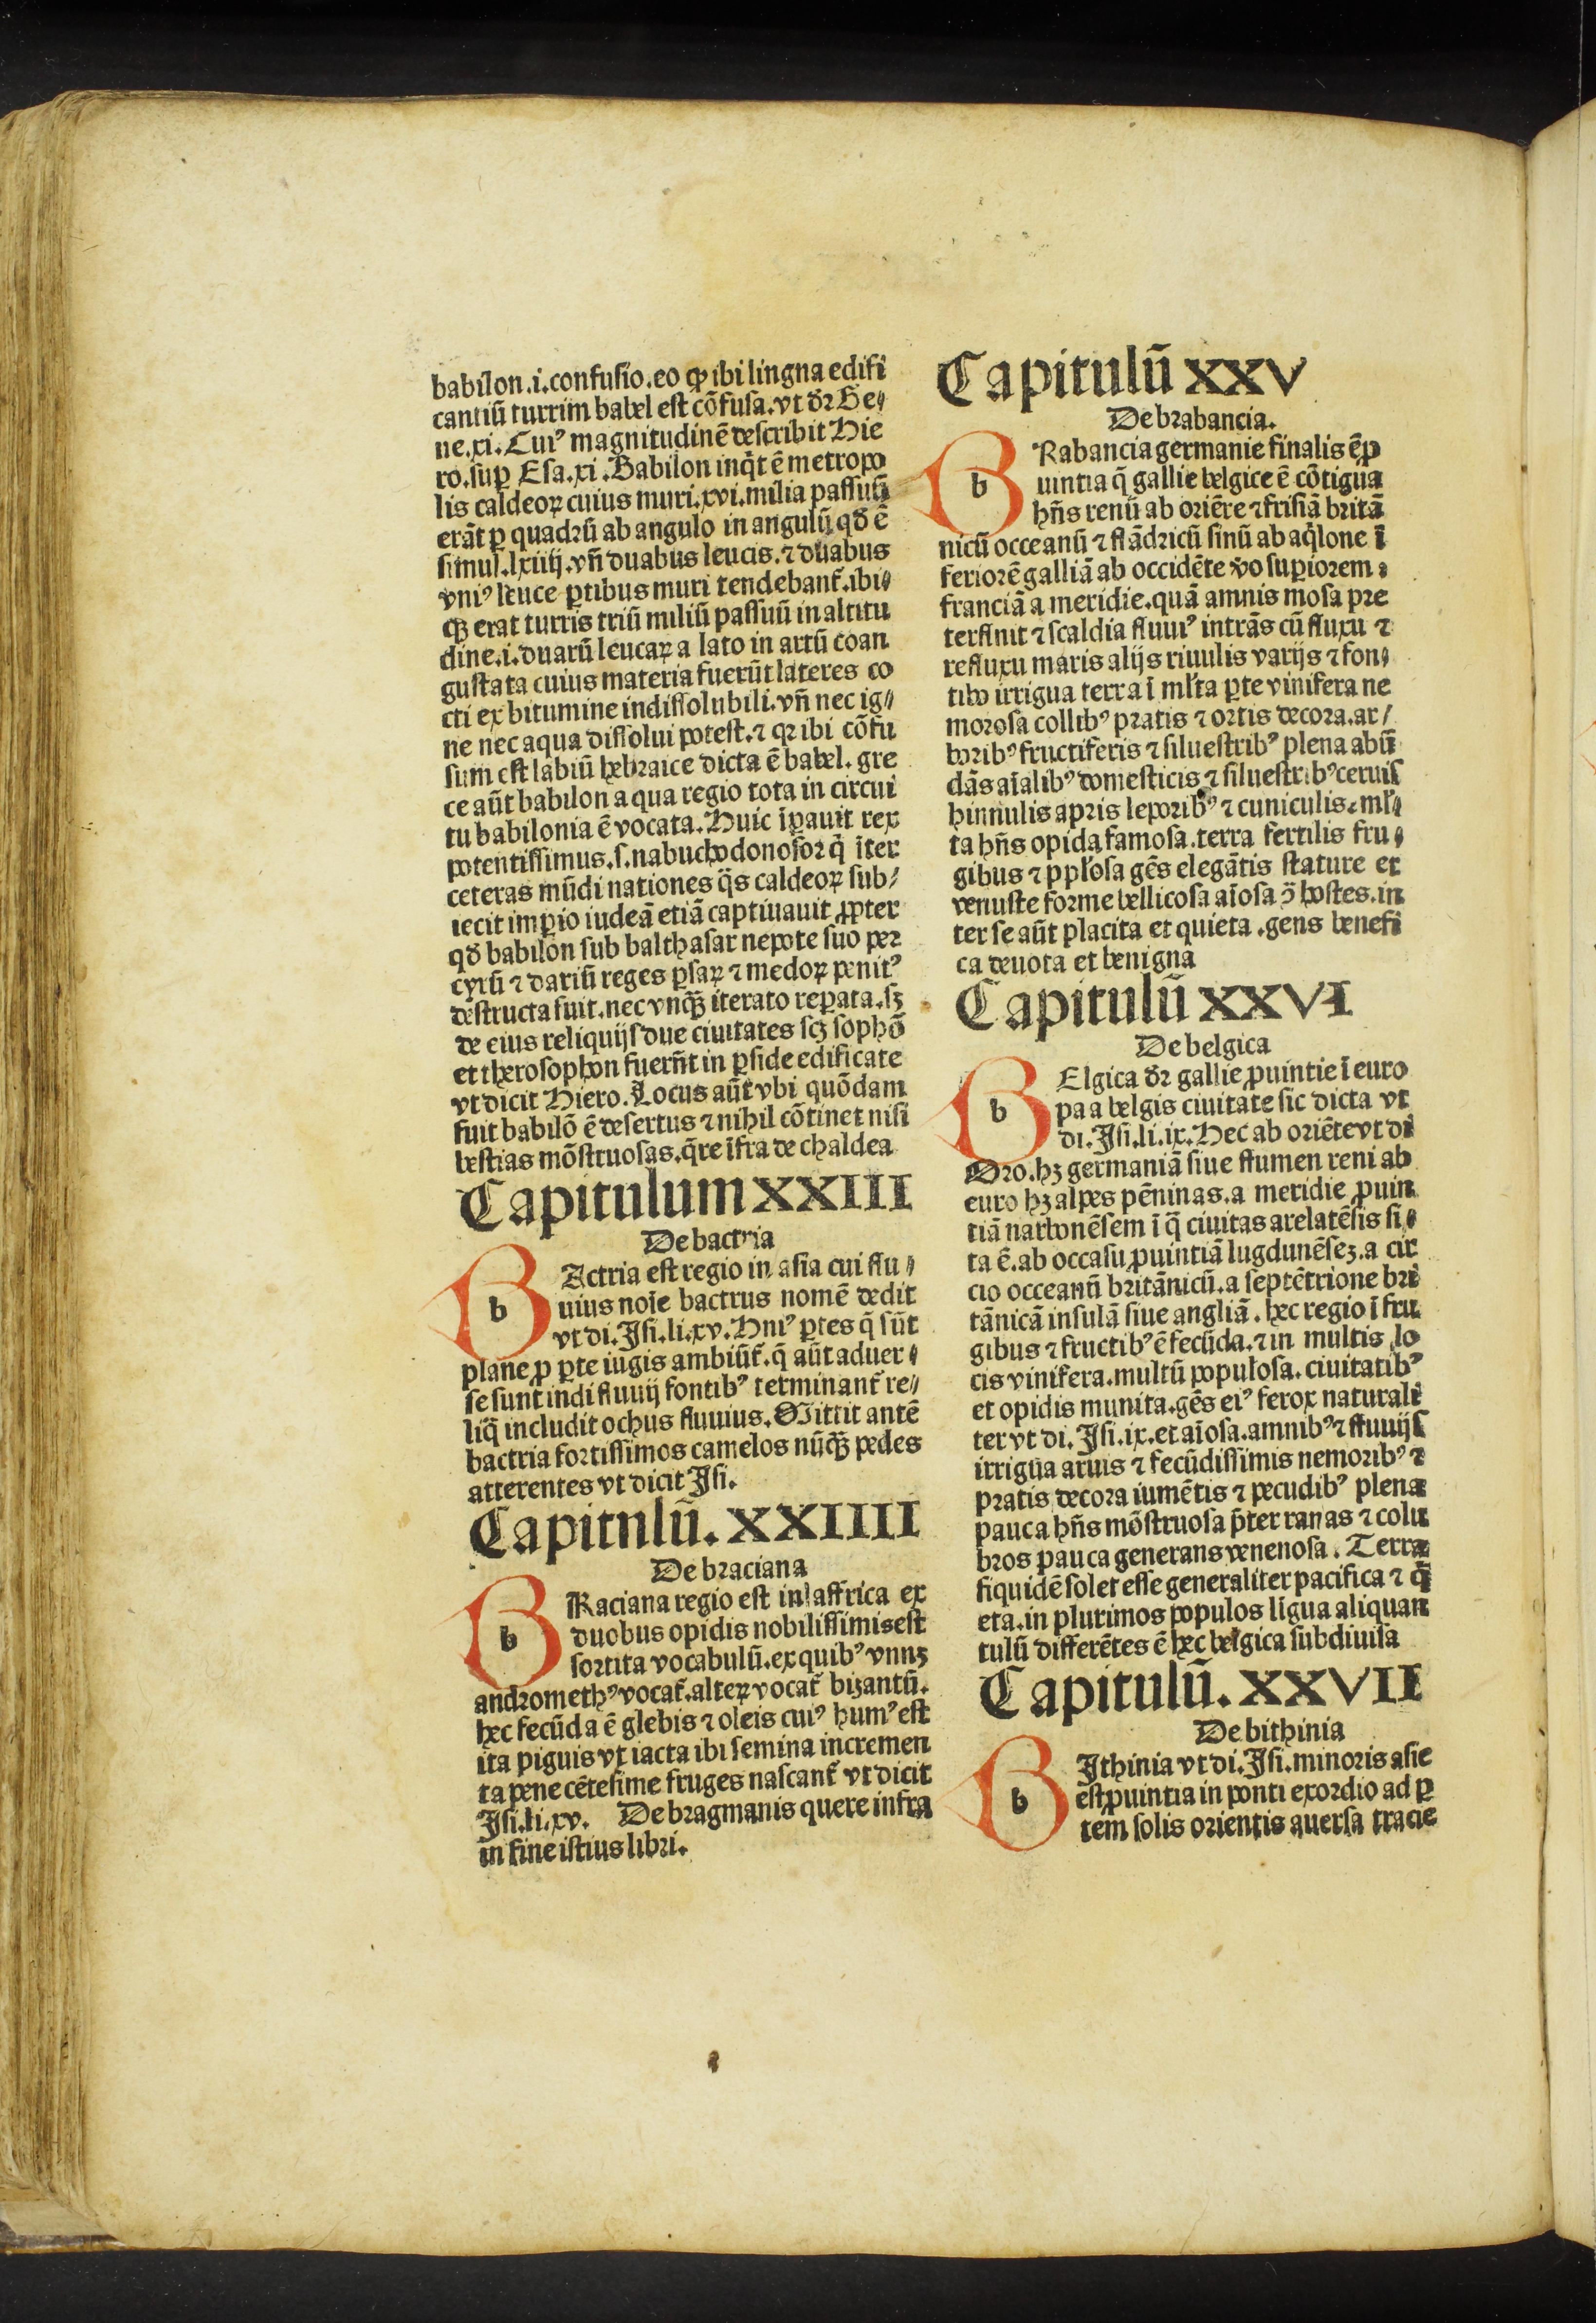 babilon.i.confusio.eo ꝙ ibi lingna edifi
cantiū turrim babel est cōfusa.vt dr̄ Ge⸗
ne.xi.Cui⁹ magnitudinē describit Hie
ro.suꝑ Esa.xi.Babilon inq̄t ē metropo
lis caldeoꝝ cuius muri.xvi.milia passuū
erāt ꝑ quadrū ab angulo in angulū qd̄ ē
simul.lxiiij.vn̄ duabus leucis.⁊ duabus
vni⁹ leuce ꝑtibus muri tendebant̄.ibi⸗
qꝫ erat turris triū miliū passuū in altitu
dine.i.duarū leucaꝝ a lato in artū coan
gustata cuius materia fuerūt lateres co
cti ex bitumine indissolubili.vn̄ nec ig⸗
ne nec aqua dissolui potest.⁊ qr ibi cōfu
sum est labiū hebraice dicta ē babel.gre
ce aūt babilon a qua regio tota in circui
tu babilonia ē vocata.Huic īꝑauit rex
potentissimus.s.nabuchodonosor q̄ īter
ceteras mūdi nationes q̄s caldeoꝝ sub⸗
iecit imꝑio iudeā etiā captiuauit ꝓpter
qd̄ babilon sub balthasar nepote suo per
cyrū ⁊ dariū reges ꝑsaꝝ ⁊ medoꝝ penit⁹
destructa fuit.nec vnqꝫ iterato reꝑata.sꝫ
de eius reliquijs due ciuitates scꝫ sophō
et therosophon fuerūt in ꝑside edificate
vt dicit Hiero.Locus aūt vbi quōdam
fuit babilō ē desertus ⁊ nihil cōtinet nisi
bestias mōstruosas.q̄re īfra de chaldea
Capitulum XXIII
De bactria
b Actria est regio in asia cui flu⸗
uius noīe bactrus nomē dedit
vt di.Isi.li.xv.Hui⁹ ꝑtes q̄ sūt
plane ꝓ ꝑte iugis ambiūt̄.q̄ aūt aduer⸗
se sunt indi fluuij fontib⁹ terminant̄ re⸗
liq̄ includit ochus fluuius.Mittit antē
bactria fortissimos camelos nūqꝫ pedes
atterentes vt dicit Isi.
Capitnlū.XXIIII
De braciana
b Raciana regio est in affrica ex
duobus opidis nobilissimis est
sortita vocabulū.ex quib⁹ vnnꝫ
andrometh⁹ vocat̄.alteꝝ vocat̄ bizantū.
hec fecūda ē glebis ⁊ oleis cui⁹ hum⁹ est
ita piguis vt iacta ibi semina incremen
ta pene cētesime fruges nascant̄ vt dicit
Isi.li.xv. De bragmanis quere infra
in fine istius libri.
Capitulū XXV
De brabancia.
b Rabancia germanie finalis ē ꝓ
uintia q̄ gallie belgice ē cōtigua
hn̄s renū ab oriēte ⁊ frisiā britā
nicū occeanū ⁊ flādricū sinū ab aq̄lone ī
feriorē galliā ab occidēte v̄o suꝑiorem⸗
franciā a meridie.quā amnis mosa pre
terfluit ⁊ scaldia fluui⁹ intrās cū fluxu ⁊
refluxu maris alijs riuulis varijs ⁊ fon⸗
tibꝰ irrigua terra ī ml̄ta ꝑte vinifera ne
morosa collib⁹ pratis ⁊ ortis decora.ar⸗
borib⁹ fructiferis ⁊ siluestrib⁹ plena abū
dās aīalib⁹ domesticis ⁊ siluestrib⁹ ceruis
hinnulis apris leporib⁹ ⁊ cuniculis.ml̄⸗
ta hn̄s opida famosa.terra fertilis fru⸗
gibus ⁊ ppl̄osa gēs elegātis stature et
venuste forme bellicosa aīosa ↄ̄ hostes.in
ter se aūt placita et quieta.gens benefi
ca deuota et benigna
Capitulū XXVI
De belgica
b Elgica dr̄ gallie ꝓuintie ī euro
pa a belgis ciuitate sic dicta vt
di.Isi.li.ix.Hec ab oriēte vt di
Oro.hꝫ germaniā siue flumen reni ab
euro hꝫ alpes pēninas.a meridie ꝓuin
tiā narbonēsem ī q̄ ciuitas arelatēsis si⸗
ta ē.ab occasu ꝓuintiā lugdunēseꝫ.a cir
cio occeanū britānicū.a septētrione bri
tānicā insulā siue angliā.hec regio ī fru
gibus ⁊ fructib⁹ ē fecūda.⁊ in multis lo
cis vinifera.multū popul̄osa.ciuitatib⁹
et opidis munita.gēs ei⁹ ferox naturali
ter vt di.Isi.ix.et aīosa.amnib⁹ ⁊ fluuijs
irrigua aruis ⁊ fecūdissimis nemorib⁹ ⁊
pratis decora iumētis ⁊ pecudib⁹ plena
pauca hn̄s mōstruosa p̄ter ranas ⁊ colu
bros pauca generans venenosa.Terra
siquidē solet esse generaliter pacifica ⁊ q̄
eta.in plurimos populos ligua aliquan
tulū differētes ē hec belgica subdiuisa
Capitulū.XXVII
De bithinia
b Ithinia vt di.Isi.minoris asie
est ꝓuintia in ponti exordio ad ꝑ
tem solis orientis auersa tracie